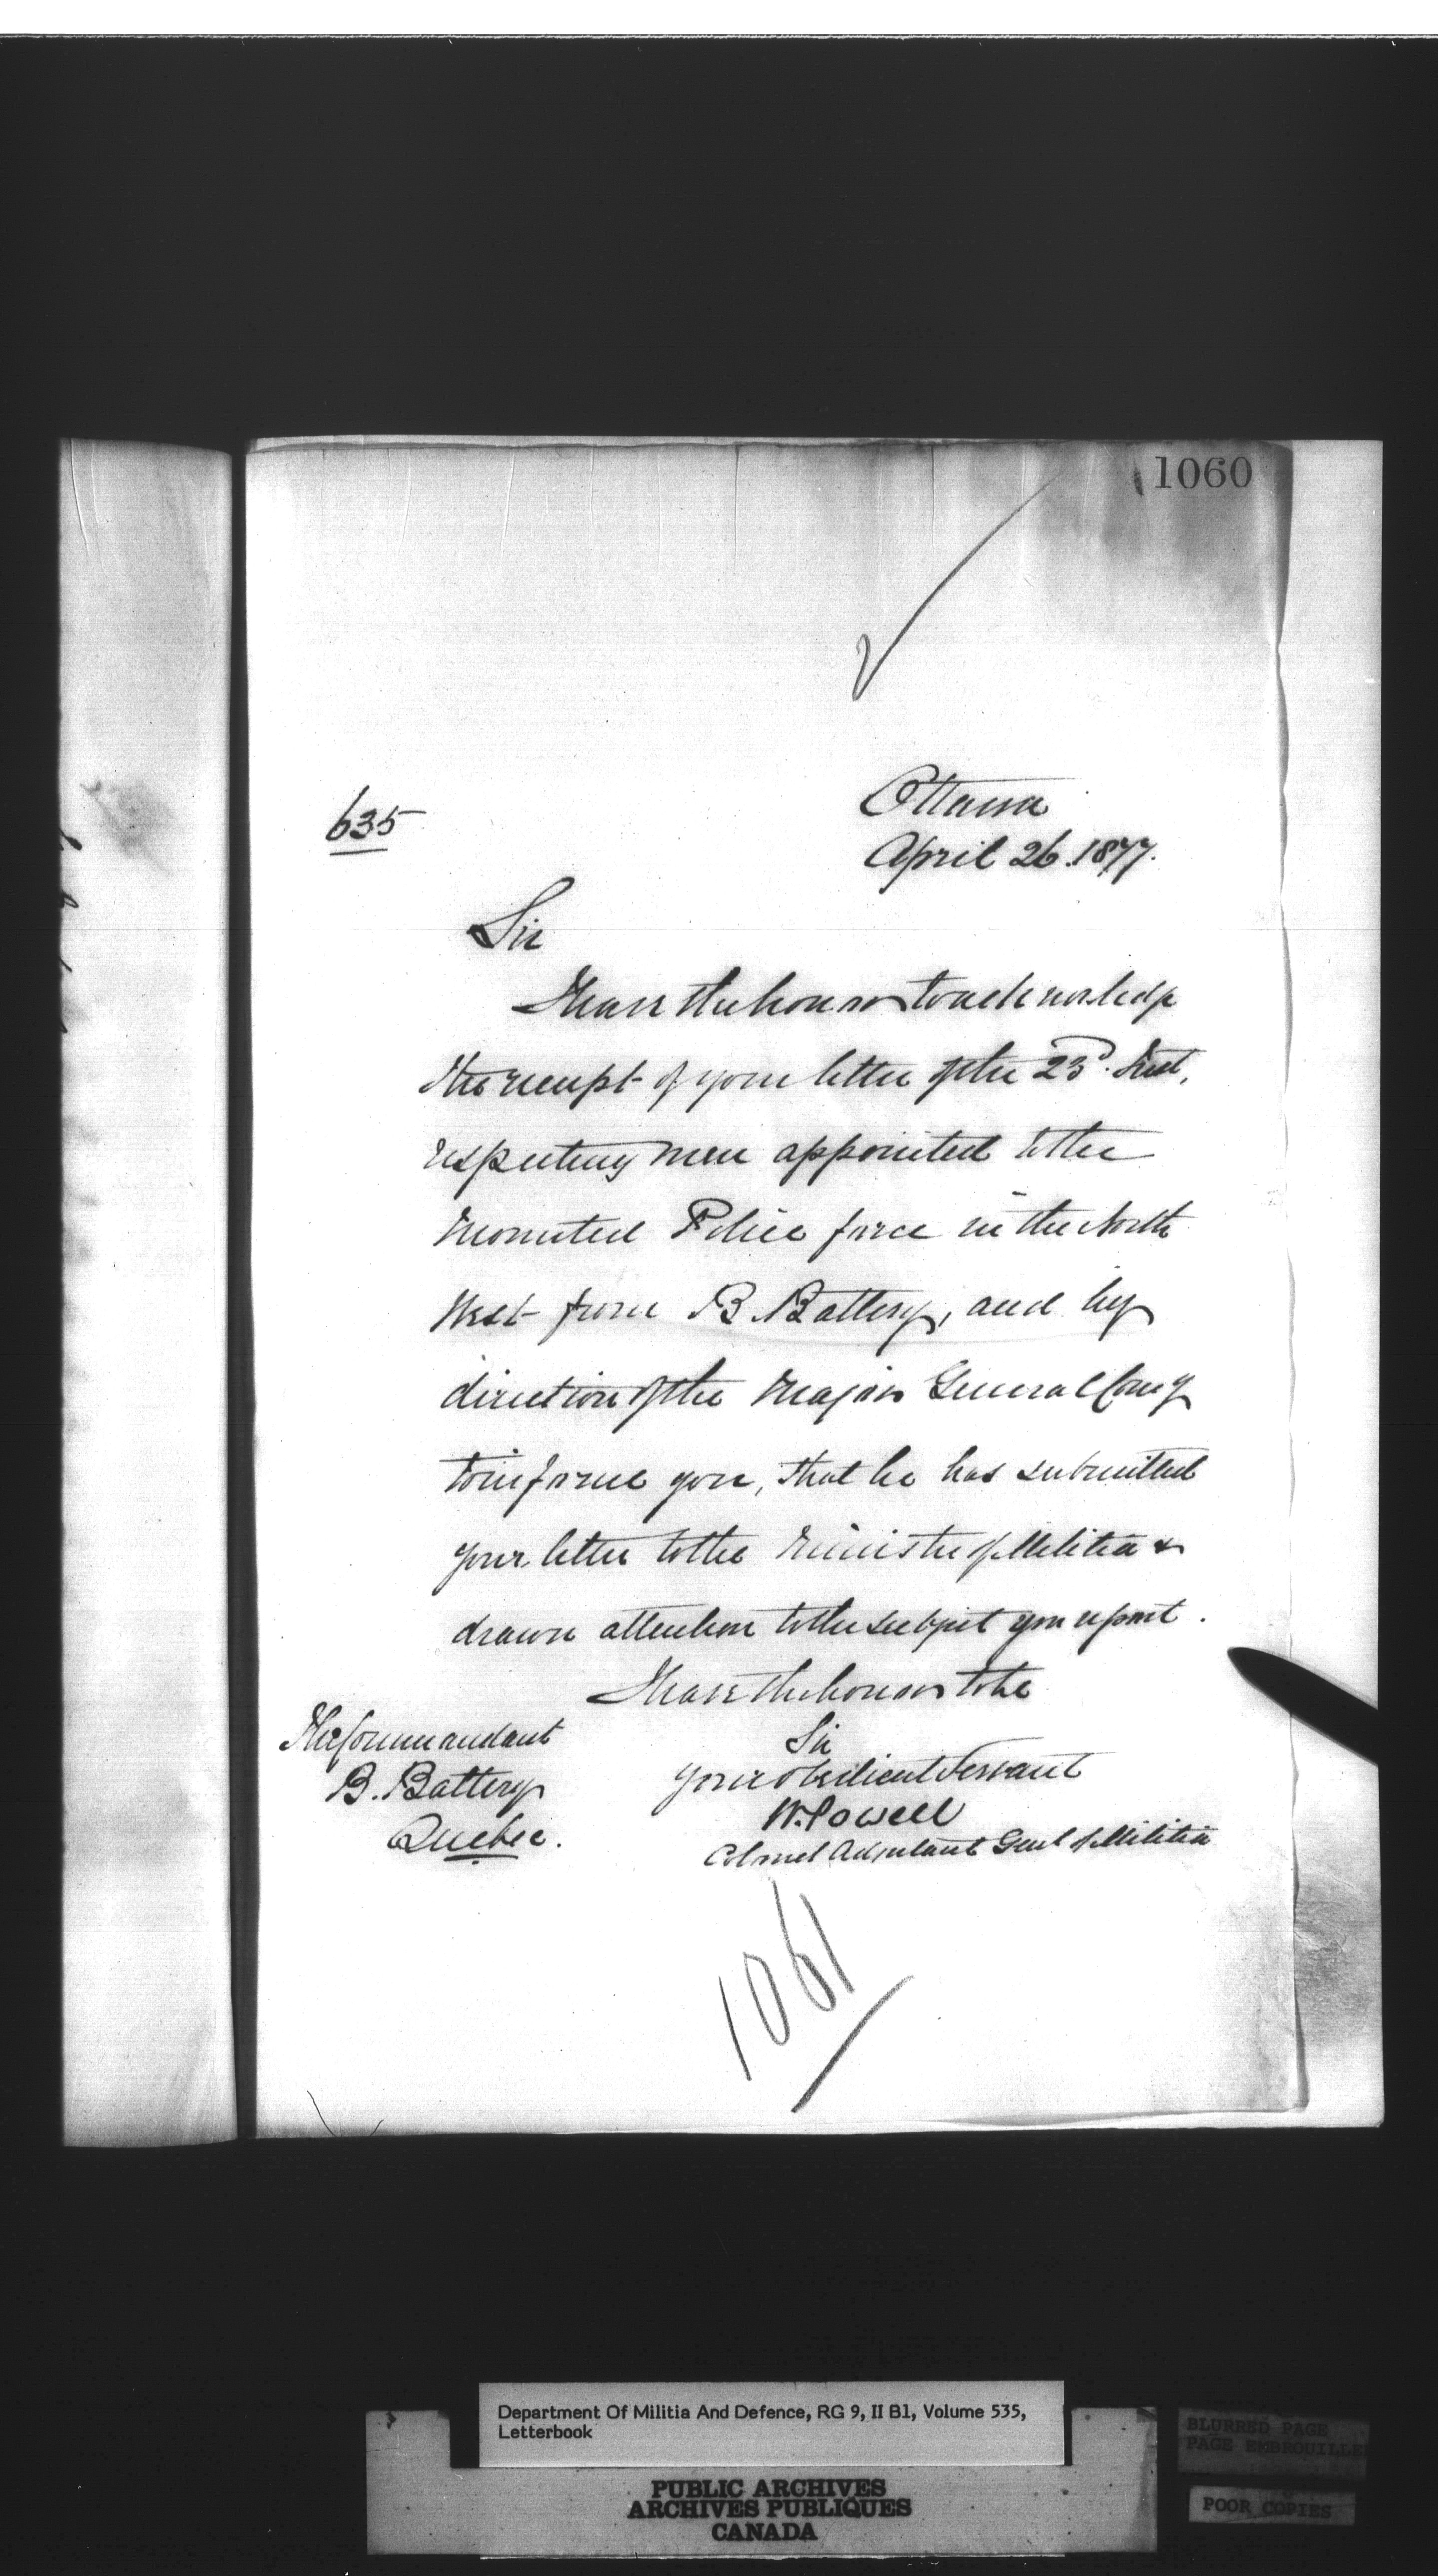 1060
635
Ottawa
April 26. 1877.
Sir
I have the honor to acknowledge
the receipt of your letter of the 23d. Inst,
respecting men appointed to the
Mounted Police force in the North
West from B. Battery, and by
direction of the Major General Comg
to inform you, that he has submitted
your letter to the Minister of Militia &
drawn attention to the subject you report.
I have the honor to be
Sir
your obedient Servant
W. Powell
Colonel Adjutant Genl of Militia
The Commandant
B. Battery
Quebec.
1061
Department Of Militia And Defence, RG 9, II B1, Volume 535,
Letterbook
PUBLIC ARCHIVES
ARCHIVES PUBLIQUES
CANADA
BLURRED PAGE
PAGE EMBROUILLE
POOR COPIES